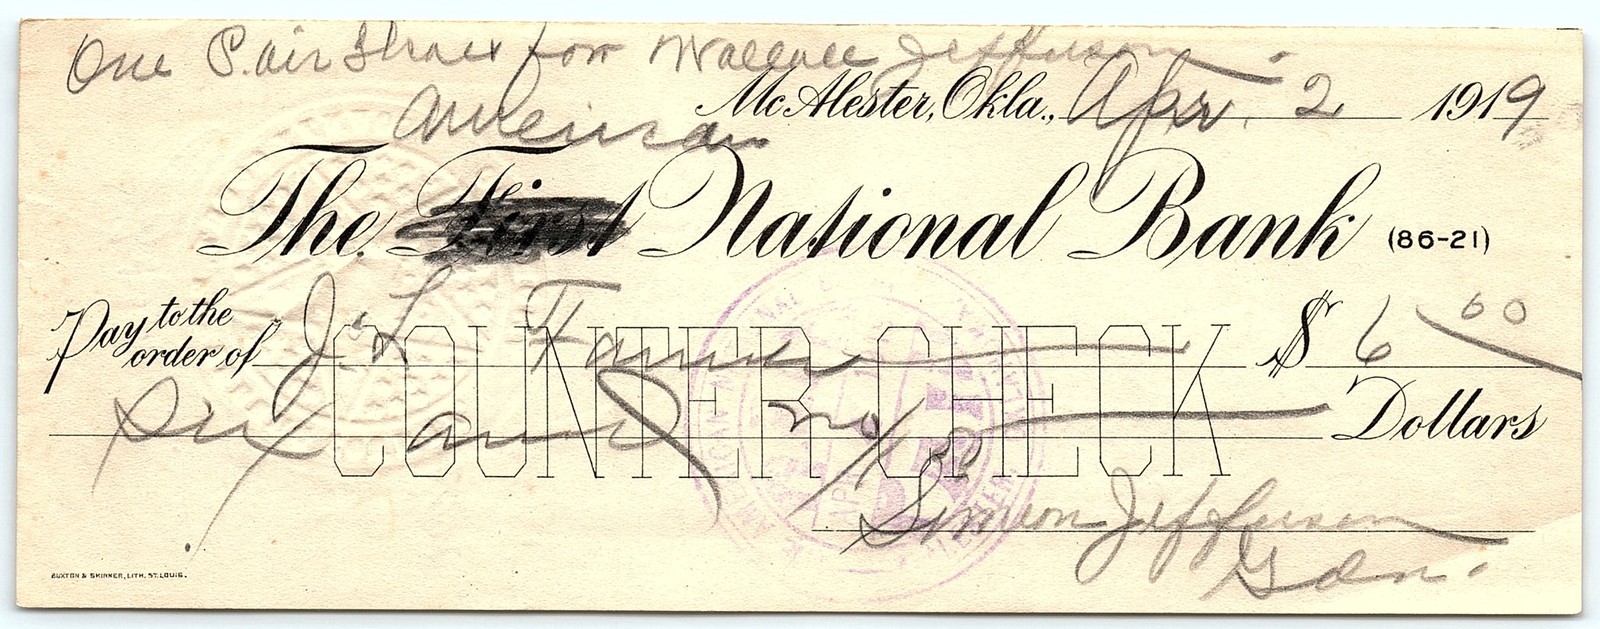 One Pair Shoes for Wallace Jefferson
American
McAlester, Okla., Apr. 2 1919
The First National Bank (86-21)
Pay to the order of J. L. $ 6 00
COUNTER CHECK
Six and no/100 Dollars
Simeon Jefferson
Gdn.
BUXTON & SKINNER, LITH. ST. LOUIS.